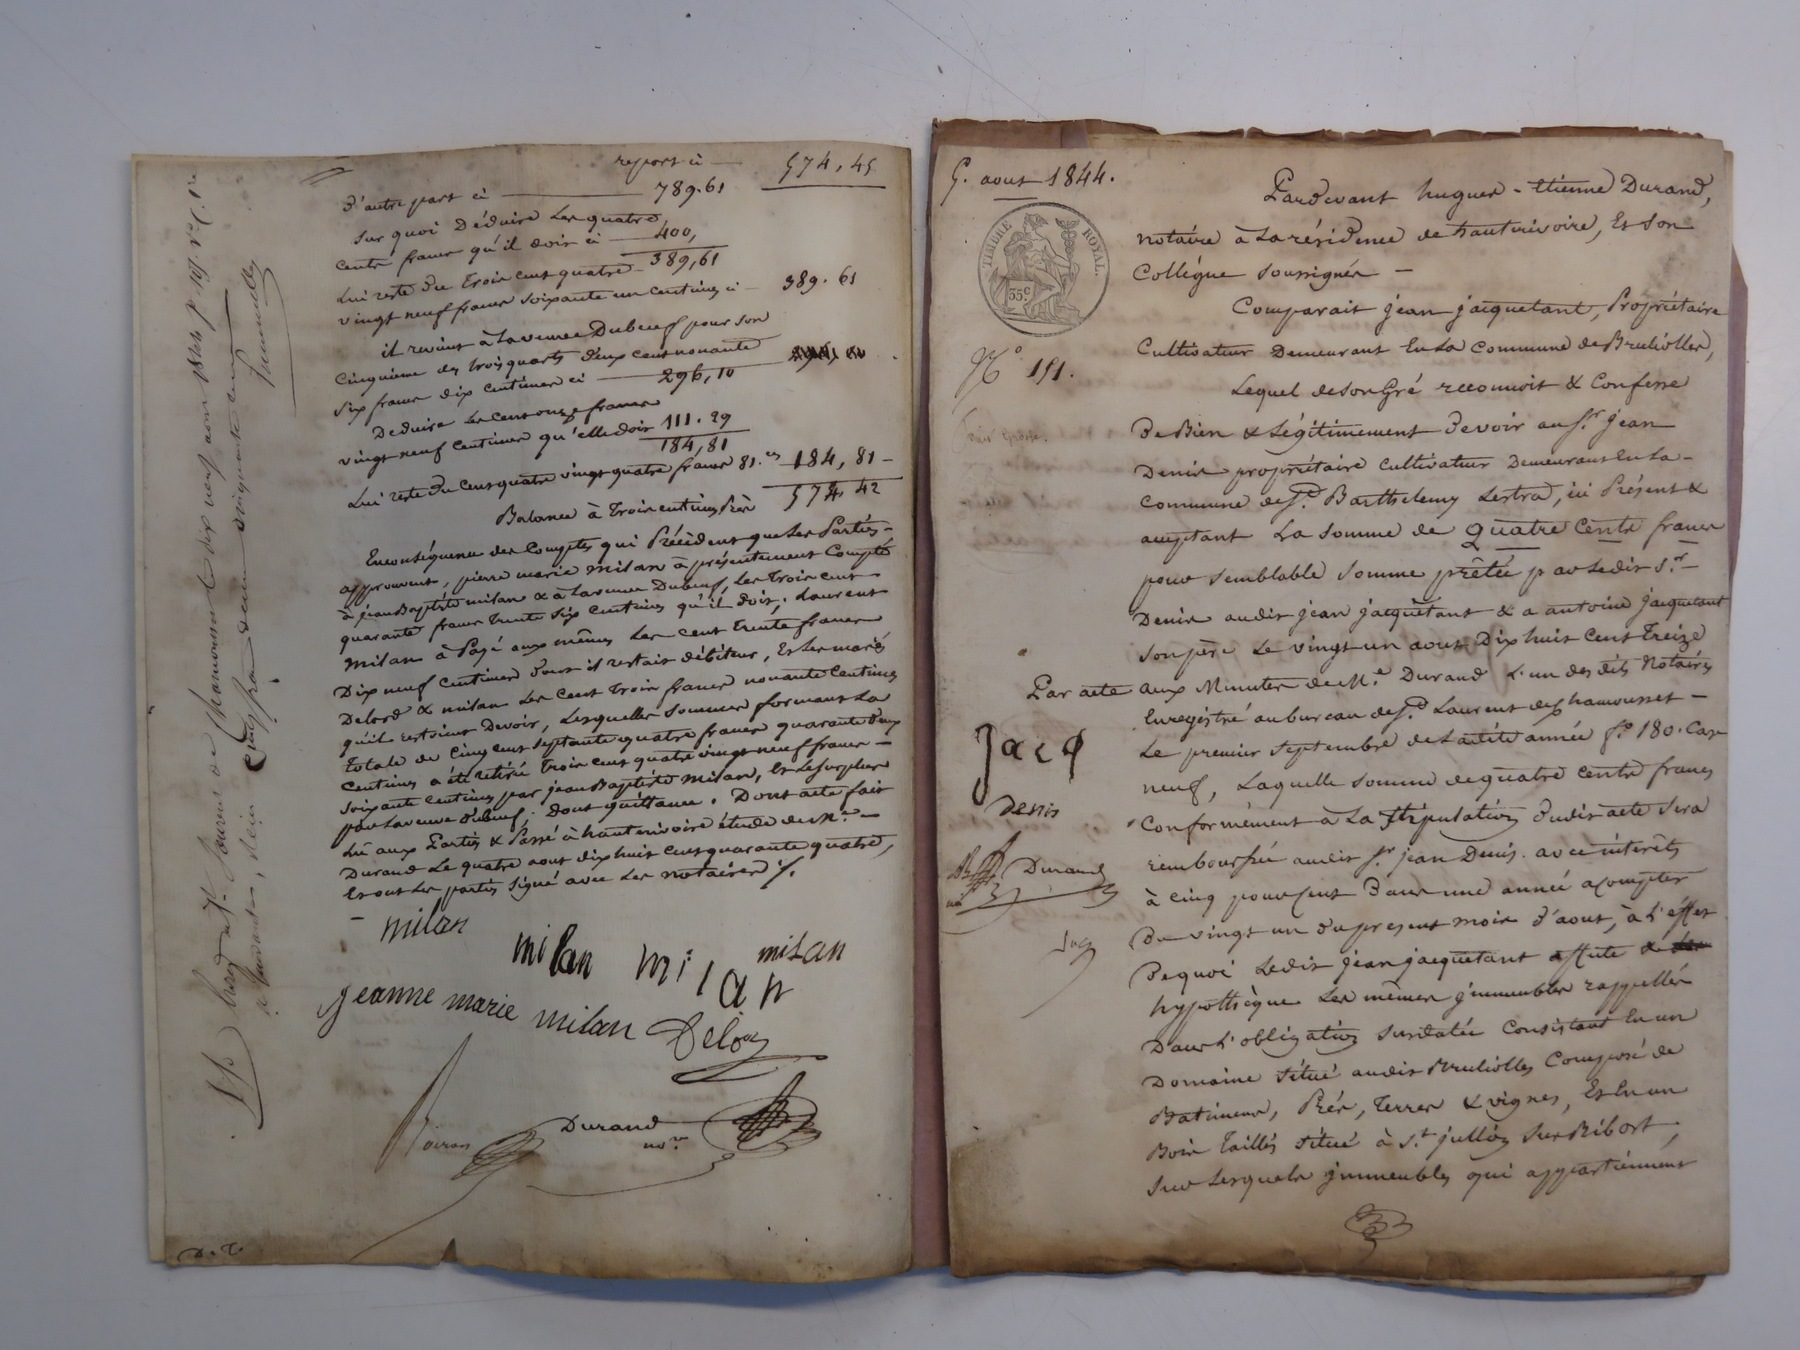 report ci — 574, 45
d'autre part ci — 789.61
sur quoi déduire les quatre
cents francs qu'il doit ci — 400,
Lui reste du trois cent quatre 389,61
vingt neuf francs soixante un centimes ci — 389.61
il revient à la veuve Dubeuf pour son
cinquième des trois quarts deux cent nonante
six francs dix centimes ci — 296,10
Déduire les cent onze francs
vingt neuf centimes qu'elle doit 111.29
184,81
Lui reste du cent quatre vingt quatre francs 81.cs 184,81 —
574, 42
Balance à trois centimes Près
En conséquence des comptes qui Précèdent que les Parties —
approuvent, pierre marie milan à présentement Compté
à jean Baptiste milan & à la veuve Dubeuf, les trois cent
quarante francs trente six centimes qu'il doit, Laurent
milan à Payé aux mêmes les cent trente francs
Dix neuf centimes dont il restait débiteur, Et les mariés
Delord & milan les cent trois francs nonante centimes
qu'il restoient Devoir, Lesquelles sommes formant la
totale de cinq cent septante quatre francs quarante deux
centimes a été retiré trois cent quatre vingt neuf francs —
soixante centimes par jean Baptiste milan, Et le surplus
par la veuve dubeuf. dont quittance. Dont acte fait
Lû aux Parties & Passé à hauterivoire étude de Me. —
Durand Le quatre aout dix huit cent quarante quatre,
Et ont les parties signé avec les notaires %.
— milan
milan milan milan
jeanne marie milan Delor
Boiron Durand
nore
D. C.
Enregté à St. Laurent de Chamousset le dix neuf aout 1844 fo. 101. Ro C. 1re
5. aout 1844.
TIMBRE ROYAL.
35 c
No 151.
Pardevant hugues - Etienne Durand,
notaire à La résidence de hauterivoire, Et Son
Collégue Soussignés —
Comparait jean jacquetant, Propriétaire
Cultivateur Demeurant En La Commune de Brulliolles,
Lequel de son Gré reconnoit & Confesse
De Bien & Légitimement Devoir au Sr. jean
Denis propriétaire cultivateur Demeurant En La —
Commune de St. Barthelemy Lestra, ici Présent &
acceptant La Somme de quatre cents francs
pour Semblable Somme prêtée par Ledit Sr. —
Denis audit jean jacquetant & a antoine jacquetant
Son père Le vingt un aout Dix huit cent treize
Par acte aux Minutes de Me. Durand L'un des dits Notaires
Enregistré au bureau de St. Laurent de Chamousset —
Le premier Septembre de Ladite année fo. 180. Case
neuf, Laquelle somme de quatre cents francs
Conformément à La Stipulation dudit acte Sera
remboursée audit Sr. jean Denis. avec intérêts
à cinq pour cent Dans une année a compter
Du vingt un du présent mois d'aout, à L'effet
De quoi Ledit jean jacquetant affecte &
hypothèque Les mêmes jmmeubles rappellés
Dans L'obligation Susdatée Consistant En un
Domaine Situé audit Brulliolles Composé de
Batimens, Prés, terres & vignes, Et En un
Bois taillis Situé à St. jullien Sur Bibost,
Sur Lesquels jmmeubles qui appartiennent
Jacq
denis
Durand